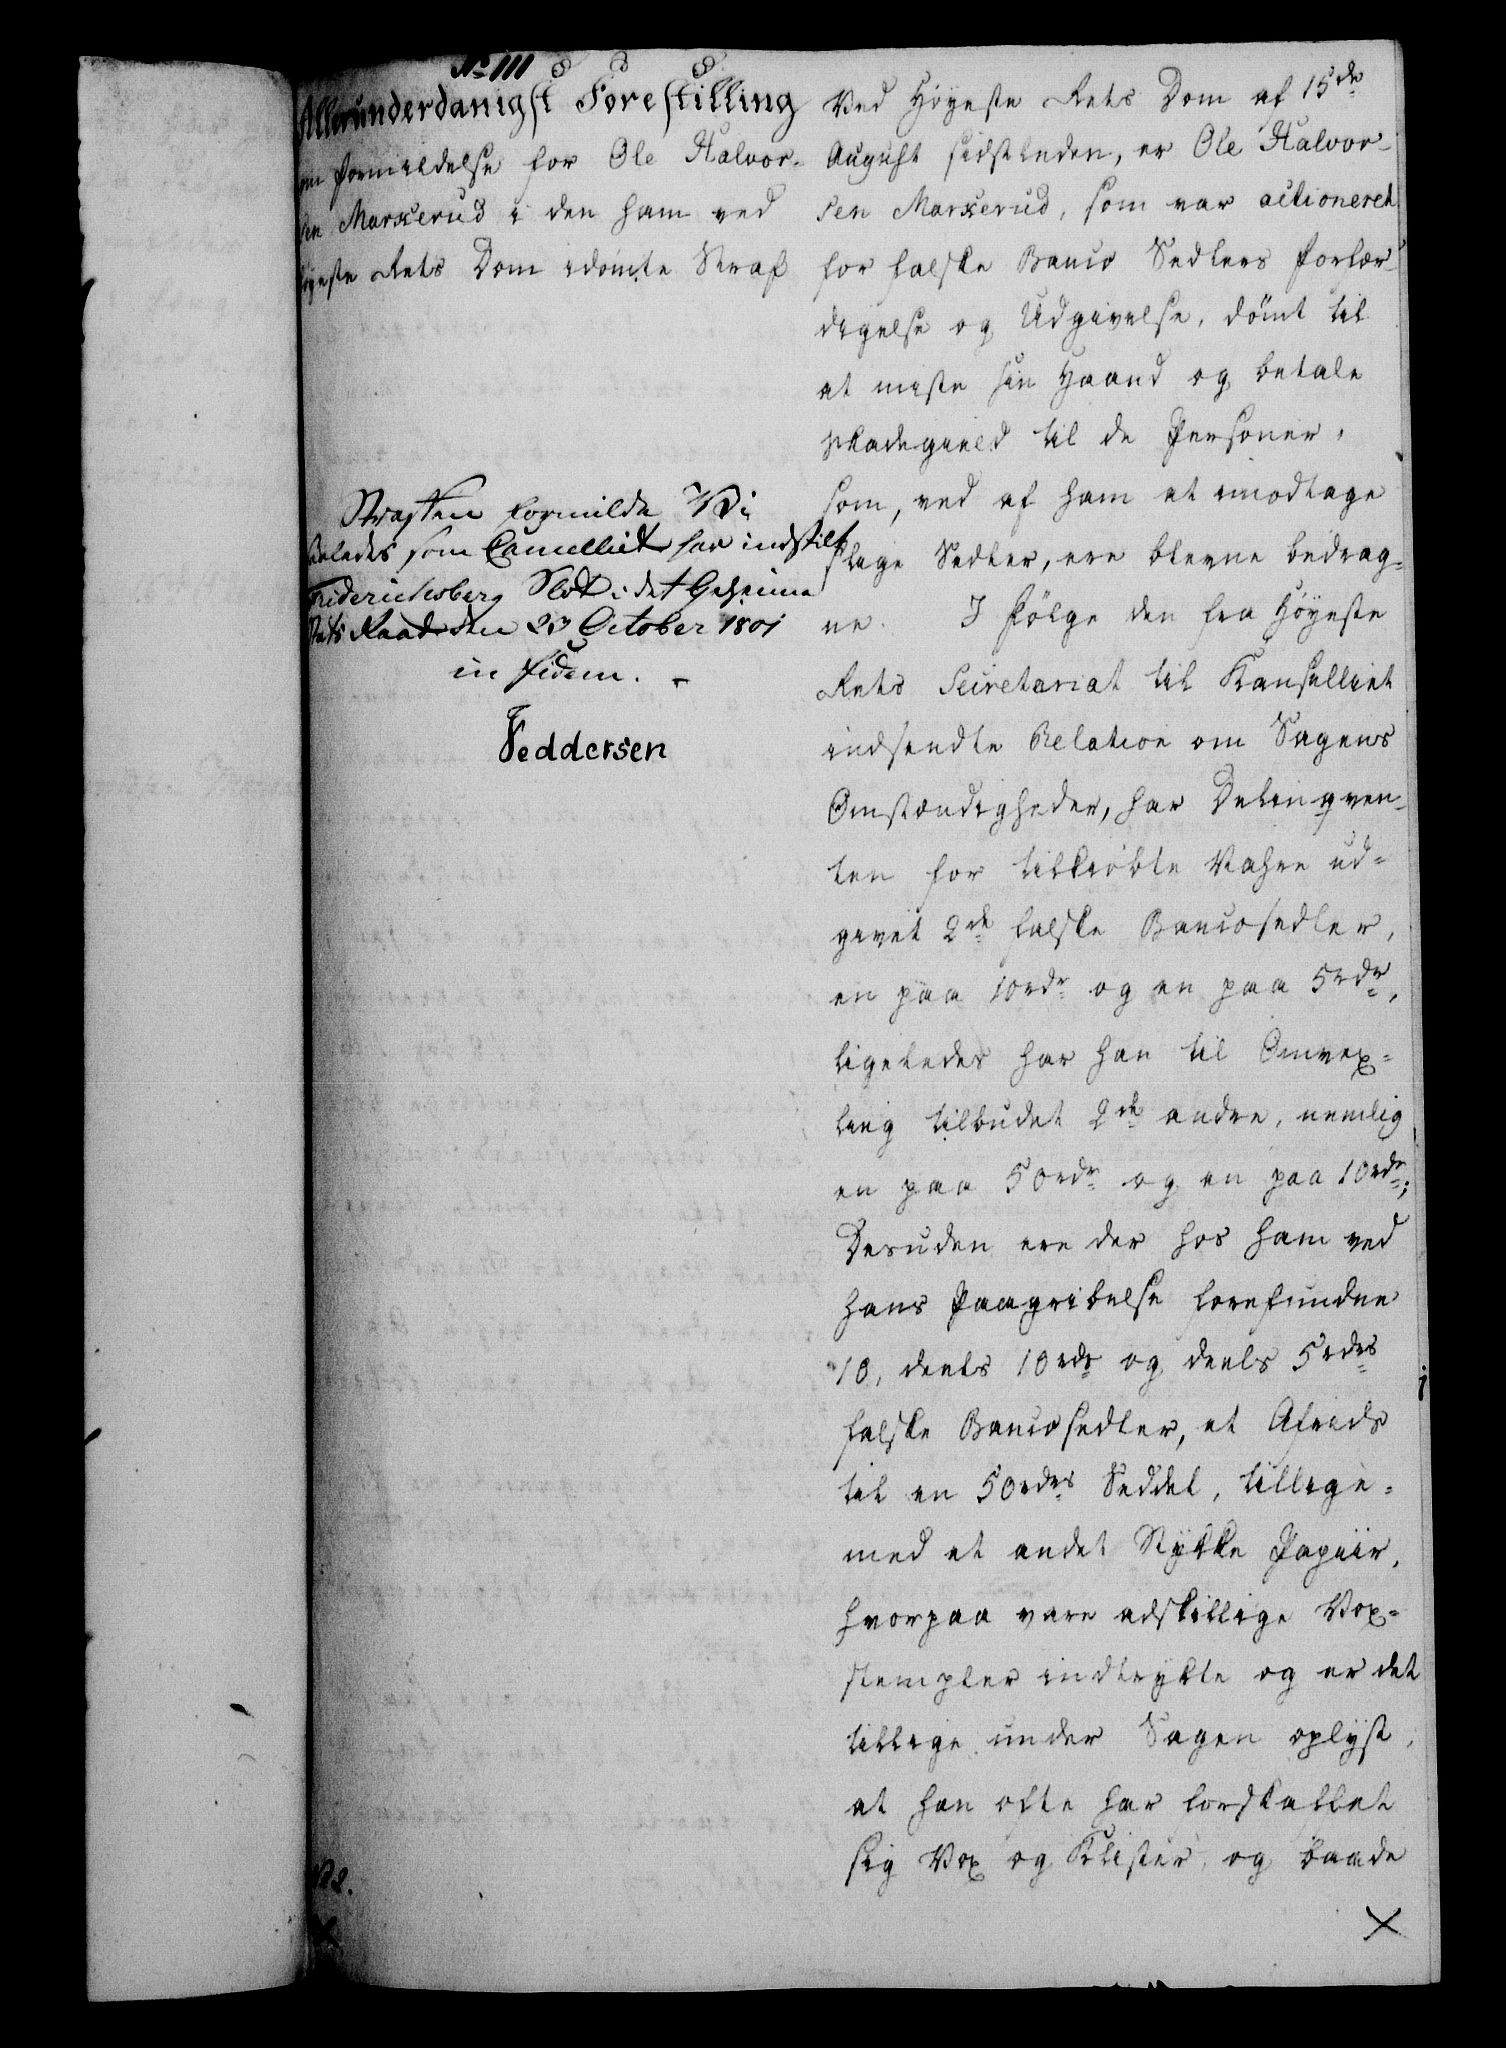 No 111
Allerunderdanigst Forestilling
om Formildelse for Ole Halvor-
sen Marxerud i den ham ved
Høyeste Rets Dom idømte Straf
Straffen formilde Vi
saaledes som Cancelliet har indstilt
Friderichsberg Slot i det Geheime
Stats Raad den 23 October 1801
in fidem.
Feddersen
Ved Høyeste Rets Dom af 15de
August sidstleden, er Ole Halvor-
sen Marxerud, som var actioneret
for falske Banco Sedlers Forfær-
digelse og Udgivelse, dømt til
at miste sin Haand og betale
Skadegield til de Personer,
som, ved af ham at imodtage
slige Sedler, ere blevne bedrag=
ne. I Følge den fra Høyeste
Rets Secretariat til Kanselliet
indsendte Relation om Sagens
Omstændigheder, har Delinqven-
ten for tilkiøbte Vahre ud=
givet 2de falske Bancosedler,
en paa 10rdr og en paa 5rdr,
ligeledes har han til Omvex=
ling tilbudet 2de andre, nemlig
en paa 50rdr og en paa 10rdr;
Desuden ere der hos ham ved
hans Paagribelse forefundne
10, deels 10rdr og deels 5rdrs
falske Bancosedler, et Afrids
til en 50rdrs Seddel, tillige=
med et andet Stykke Papiir,
hvorpaa vare adskillige Vox=
stempler indtrykte og er det
tillige under Sagen oplyst,
at han ofte har forskaffet
sig Vox og Klister, og baade